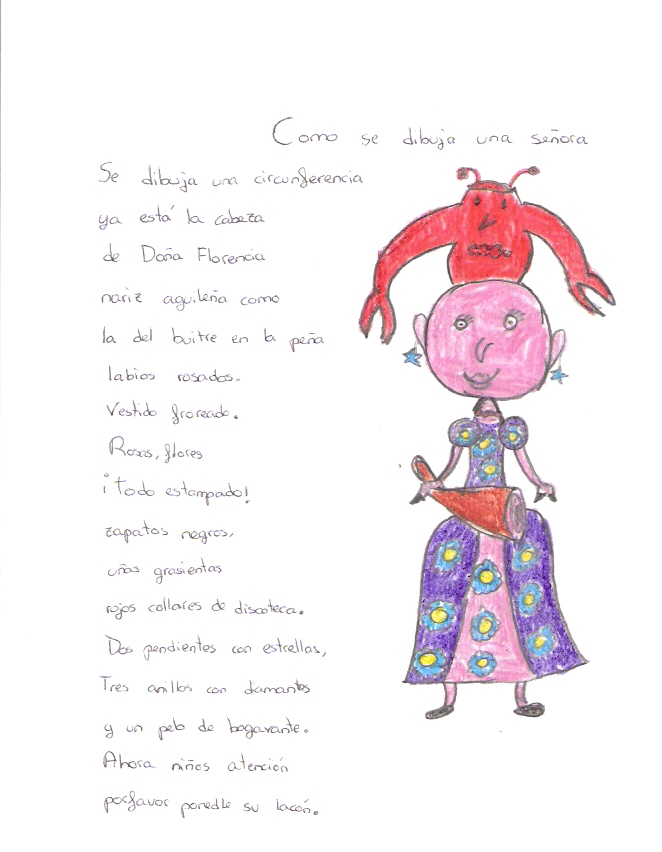 Como se dibuja una señora
Se dibuja una circunferencia
ya está la cabeza
de Doña Florencia
nariz aguileña como
la del buitre en la peña
labios rosados.
Vestido froreado.
Rosas, flores
¡Todo estampado!
zapatos negros,
uñas grasientas
rojos collares de discoteca.
Dos pendientes con estrellas,
Tres anillos con diamantes
y un pelo de bogavante.
Ahora niños atención
porfavor ponedle su lacón.